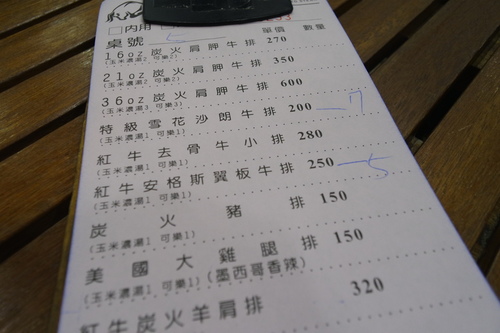 □內用
單價 數量
桌號
16oz 炭火肩胛牛排 270
(玉米濃湯2 可樂2)
21oz 炭火肩胛牛排 350
(玉米濃湯2 可樂2)
36oz 炭火肩胛牛排 600
(玉米濃湯3 可樂3)
特級雪花沙朗牛排 200
(玉米濃湯1 可樂1)
紅牛去骨牛小排 280
(玉米濃湯1 可樂1)
紅牛安格斯翼板牛排 250
(玉米濃湯1 可樂1)
炭火豬排 150
(玉米濃湯1 可樂1)
美國大雞腿排 150
(玉米濃湯1 可樂1)(墨西哥香辣)
紅牛炭火羊肩排 320